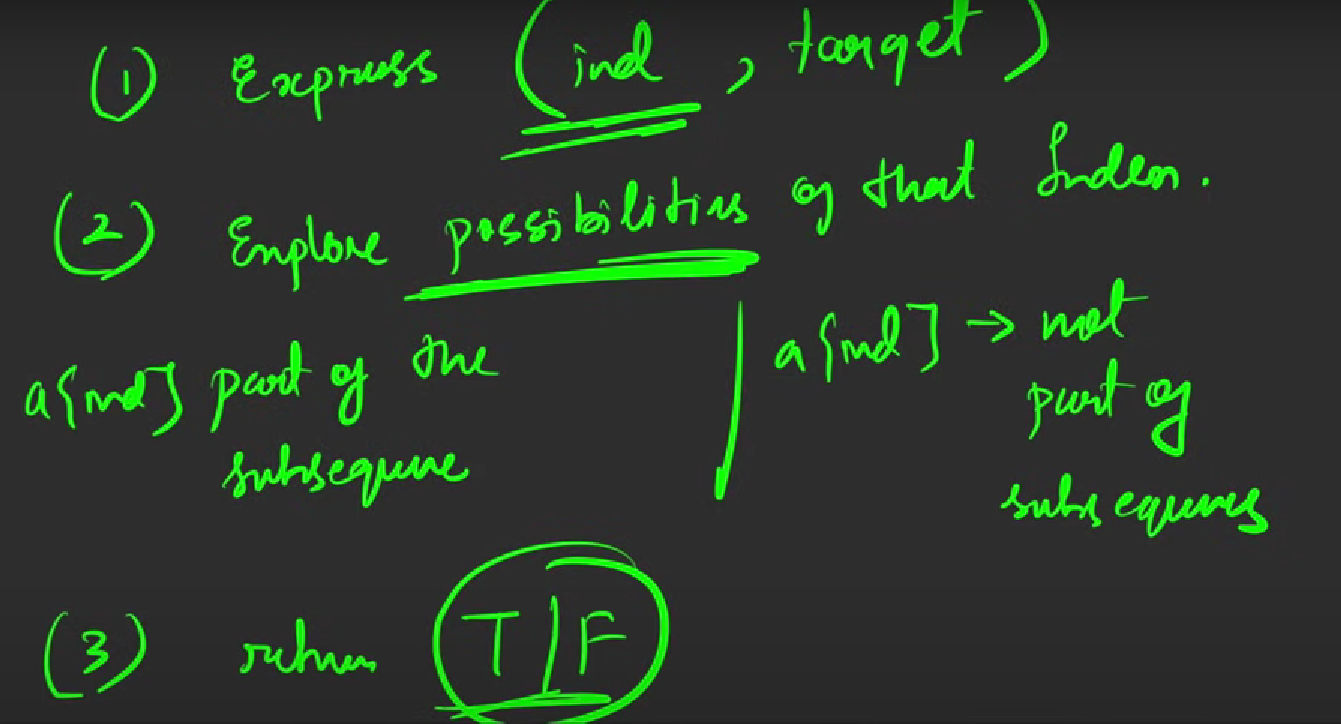 (1) Express (ind, target)
(2) Explore possibilities of that Index.
a[ind] part of the subsequence
a[ind] → not part of subsequence
(3) return T/F